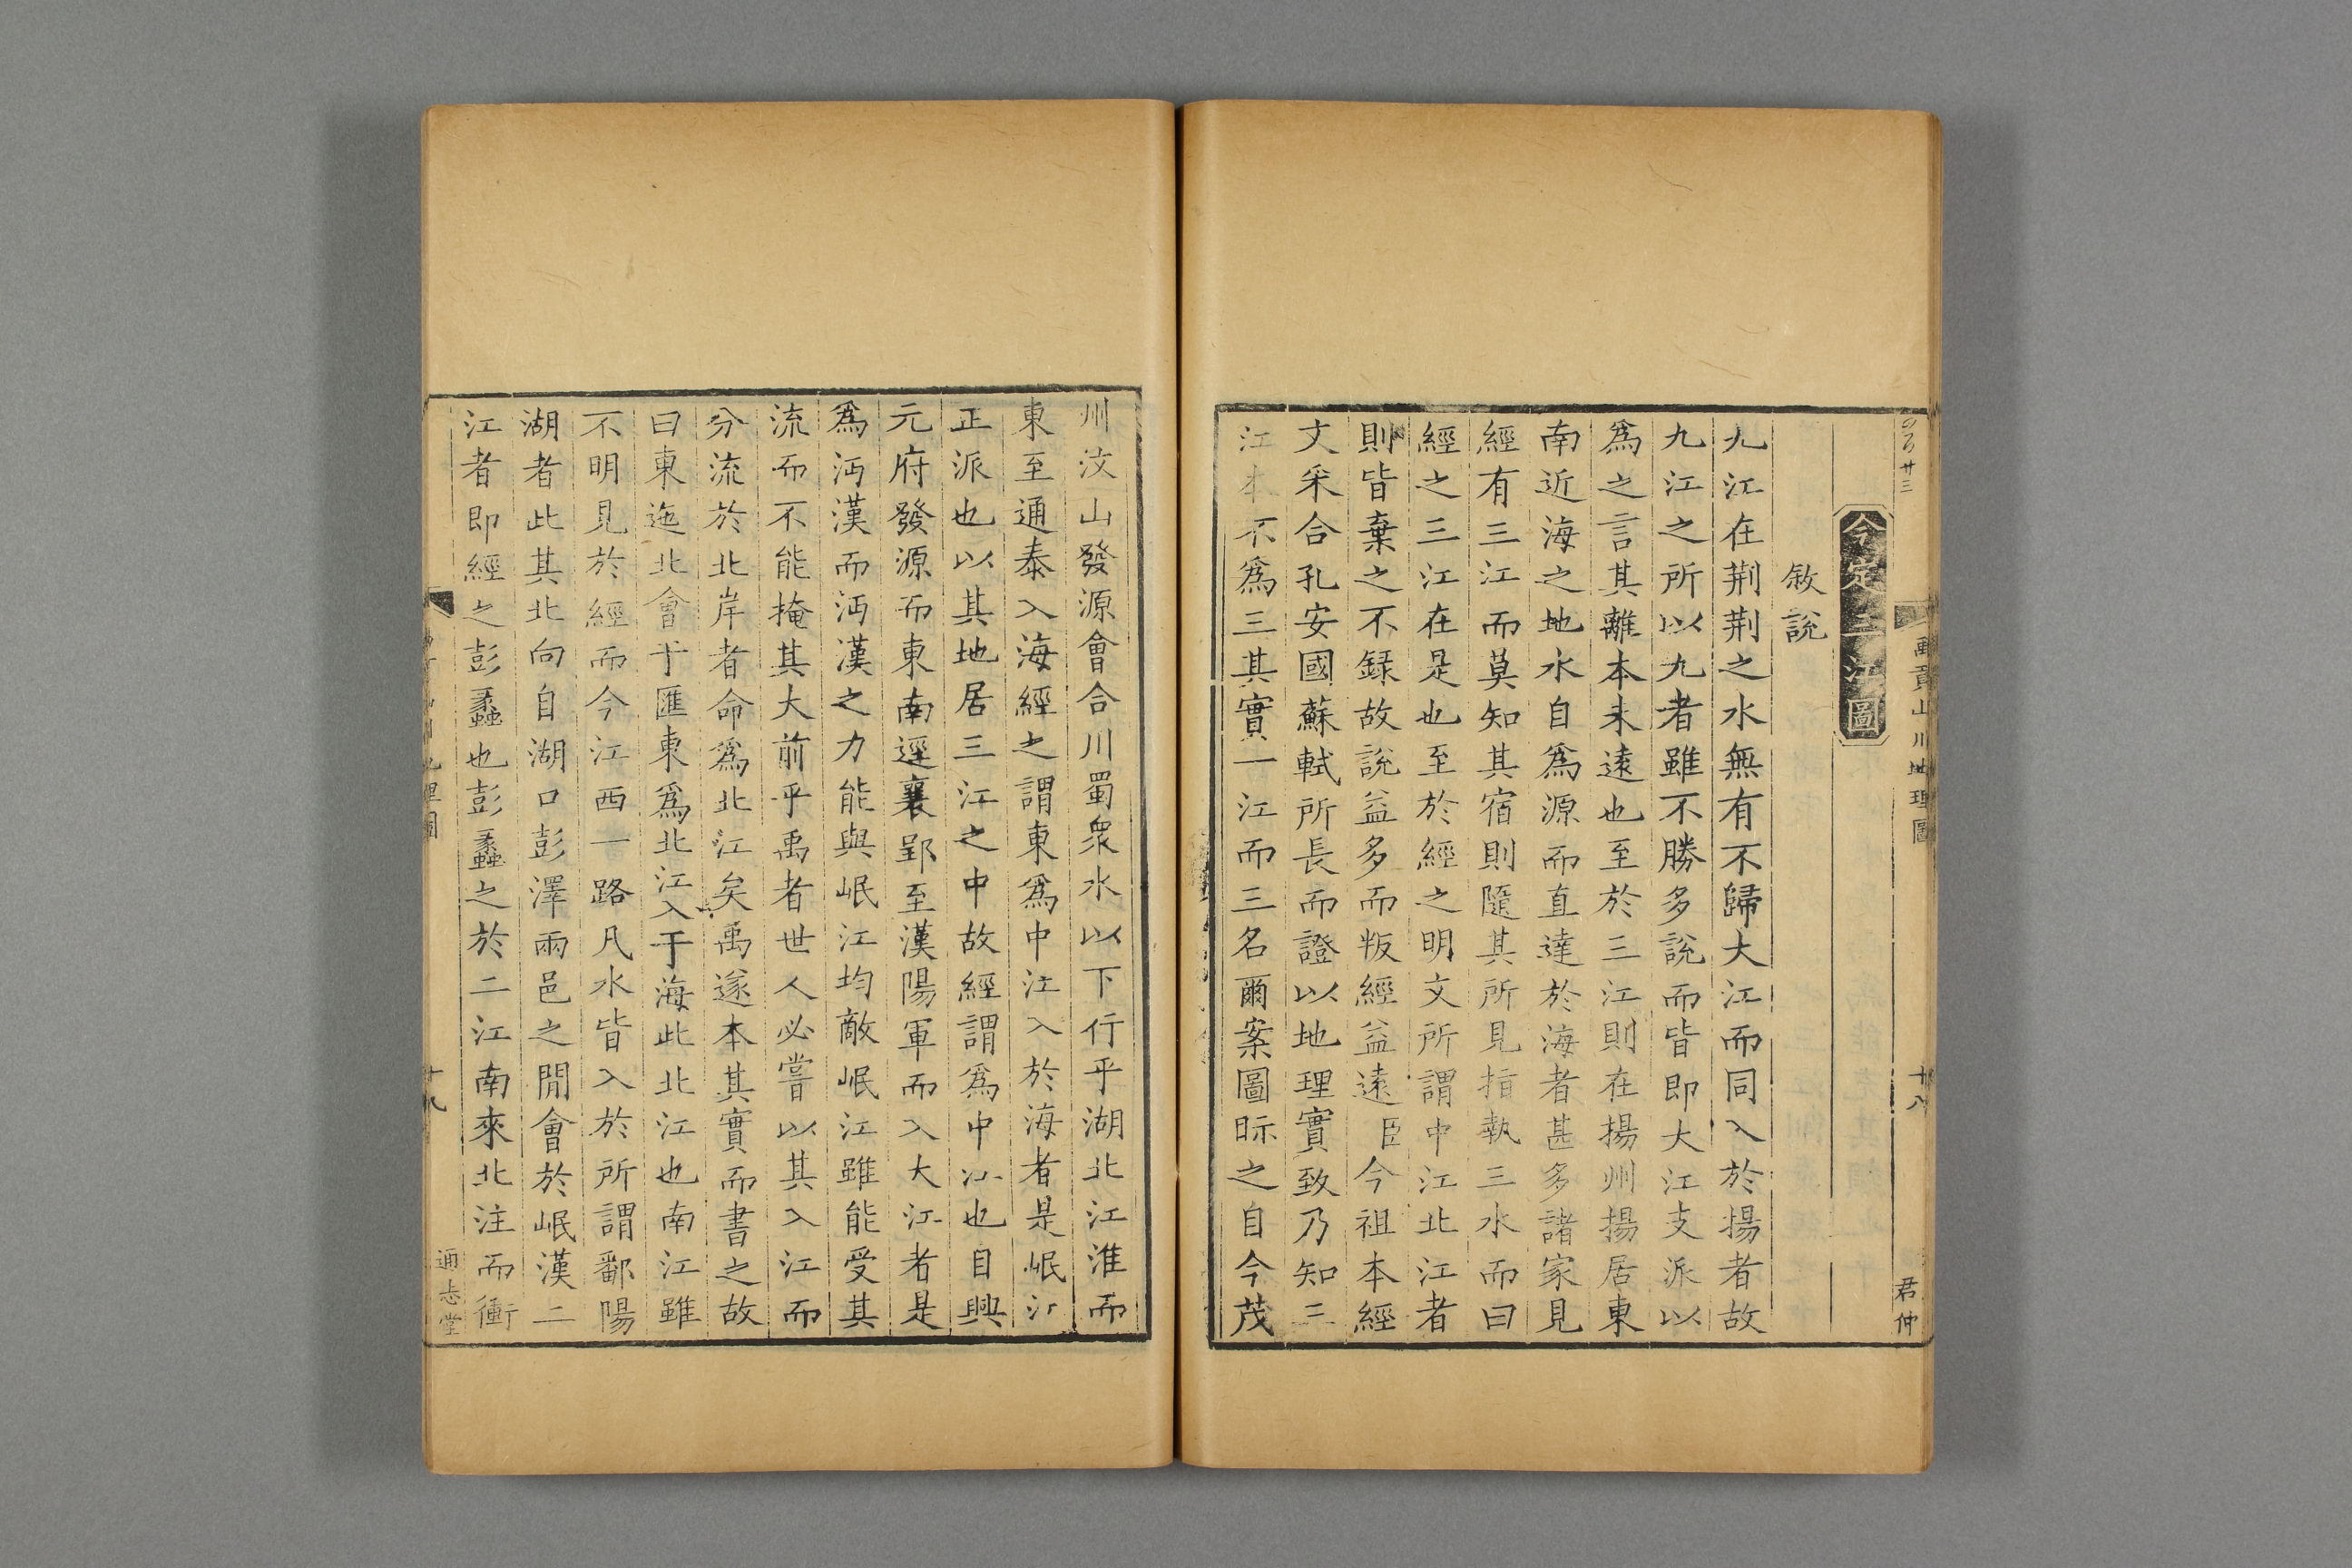 禹貢山川地理圖
十八
君仲
今定三江圖
敘說
九江在荆荆之水無有不歸大江而同入於揚者故
九江之所以九者雖不勝多說而皆即大江支派以
爲之言其離本未遠也至於三江則在揚州揚居東
南近海之地水自爲源而直達於海者甚多諸家見
經有三江而莫知其宿則隨其所見指執三水而曰
經之三江在是也至於經之明文所謂中江北江者
則皆棄之不録故說益多而叛經益遠臣今祖本經
文采合孔安國蘇軾所長而證以地理實致乃知三
江本不爲三其實一江而三名爾案圖眎之自今茂
州汶山發源會合川蜀衆水以下行乎湖北江淮而
東至通泰入海經之謂東爲中江入於海者是岷江
正派也以其地居三江之中故經謂爲中江也自興
元府發源而東南逕襄郢至漢陽軍而入大江者是
爲沔漢而沔漢之力能與岷江均敵岷江雖能受其
流而不能掩其大前乎禹者世人必嘗以其入江而
分流於北岸者命爲北江矣禹遂本其實而書之故
曰東迤北會于匯東爲北江入于海此北江也南江雖
不明見於經而今江西一路凡水皆入於所謂鄱陽
湖者此其北向自湖口彭澤兩邑之閒會於岷漢二
江者即經之彭蠡也彭蠡之於二江南來北注而衝
十九
通志堂